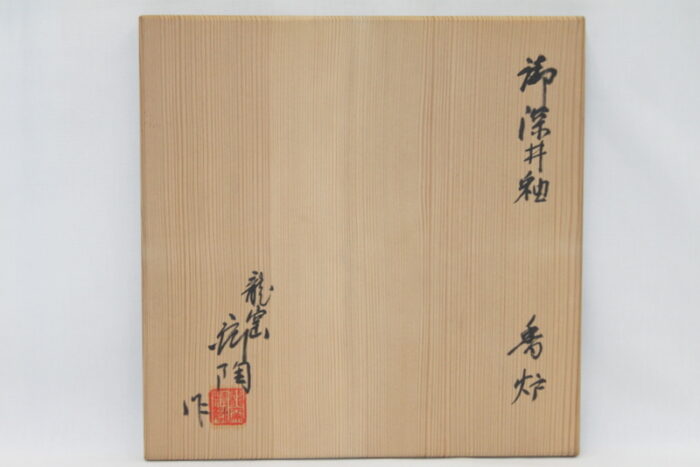 御深井釉
香炉
龍窯
陶
作